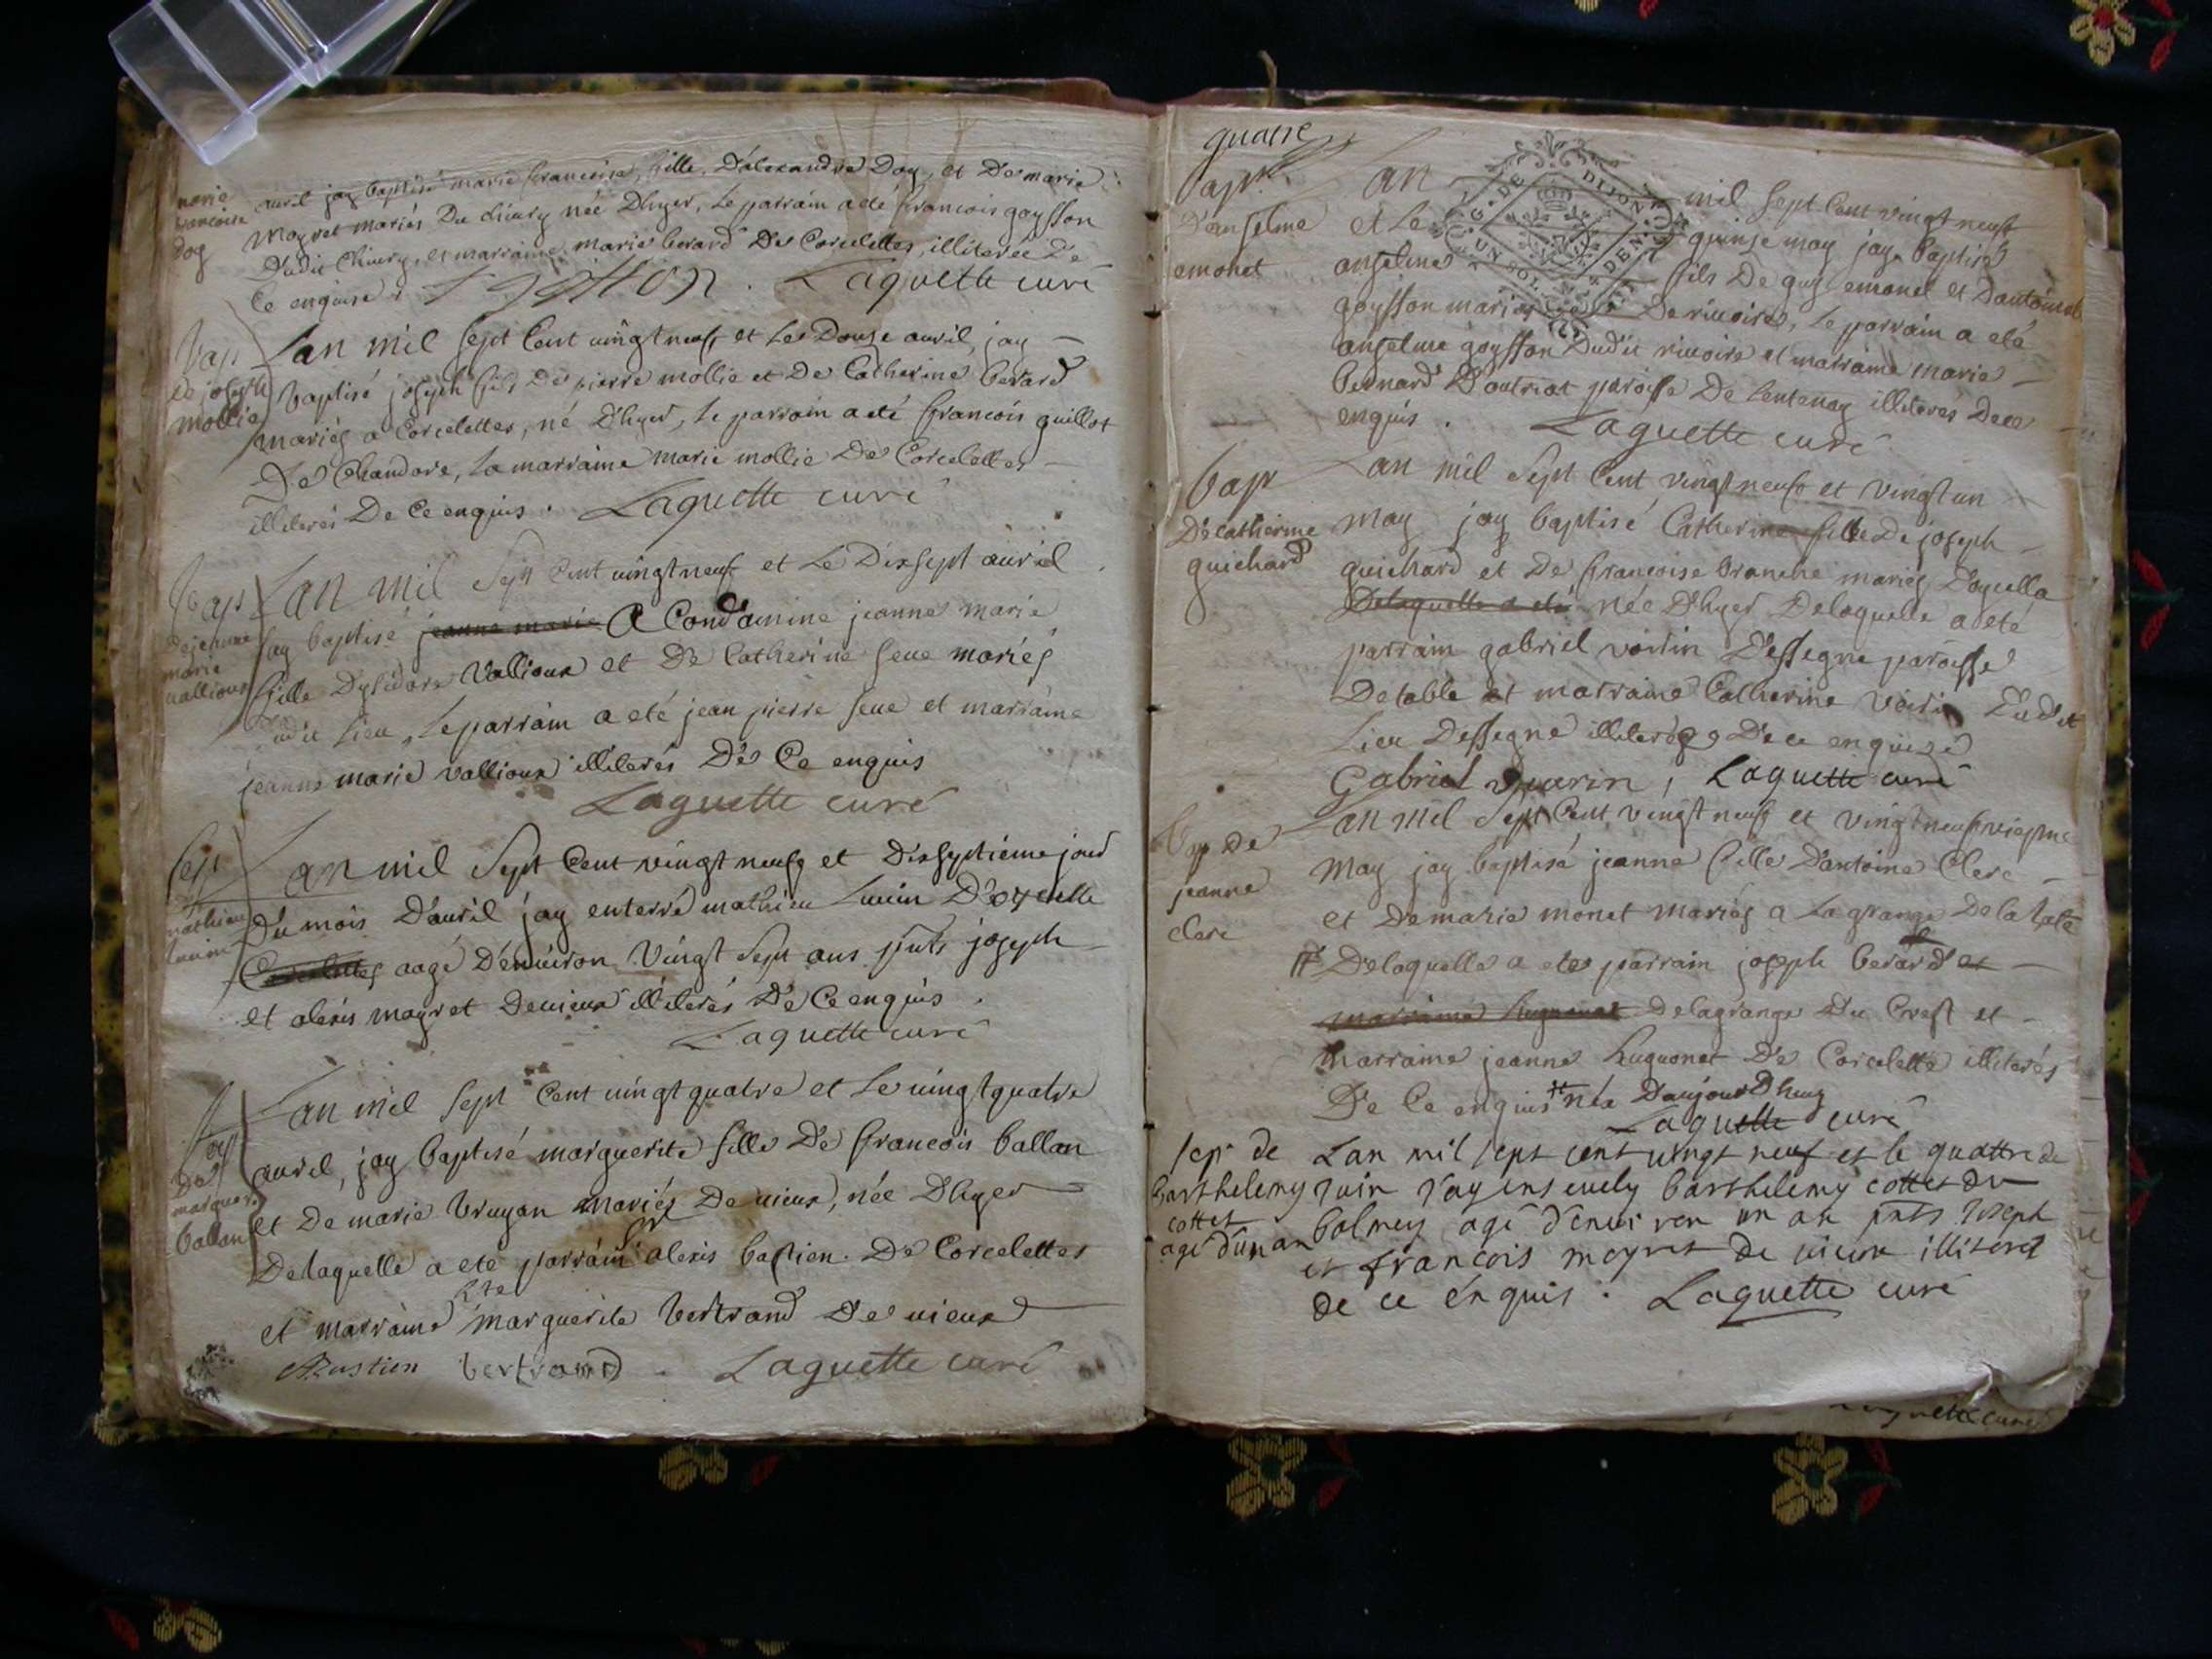 marie
francoise
dog
avril jay baptisé marie francoise, fille, D'alexandre Dog, et De marie
Moyret mariés Du Chiury née D'hyer, Le parrain a eté francois goysson
Dudit Chiury, et marraine marie berard De Corcelettes, illiterée De
Ce enquise. Laguette curé
Bap
de joseph
mollie
Lan mil sept Cent uingt neuf et Le Douse auril, jay
baptisé joseph fils De pierre mollie et De Catherine berard
mariés a Corcelettes, né D'hyer, Le parrain a eté francois guillot
De Chandore, La marraine marie mollie De Corcelettes
illiterés De Ce enquis. Laguette curé
Bap
De jeanne
marie
uallioux
Lan mil Sept Cent uingt neuf et Le Dixsept auril
jay baptisé jeanne marie A Condamine jeanne marie
fille D'ysidore Vallioux et De Catherine seue mariés
dudit Lieu, Le parrain a eté jean pierre seue et marraine
jeanne marie vallioux illiterés De Ce enquis
Laguette curé
Sep
mathieu
Lan mil Sept Cent vingt neuf et Dixseptième jour
Du mois D'auril jay enterré mathieu D'oyselle
Corcelettes aagé D'enuiron Vingt Sept ans pnts joseph
et alexis moyret De uieux illiterés De Ce enquis.
Laguette curé
Bap
De
marguer.
ballan
Lan mil Sept Cent uingt quatre et Le uingt quatre
auril, jay baptisé marguerite fille De francois ballan
et De marie bruyan mariés De uieux, née D'hyer
De laquelle a eté parrain alexis bastien De Corcelettes
et marraine marguerite bertrand De uieux
ABastien bertrand. Laguette curé
quatre
Bap
D'anselme
emonet
Lan mil Sept Cent vingt neuf
et Le quinse may jay baptisé
anselme fils De guy emonet et D'antoinette
goysson mariés De riuoire, Le parrain a eté
anselme goysson Dudit riuoire et marraine marie
bernard D'outriat paroisse De Lentenay illiterés De ce
enquis. Laguette curé
G. DE DIJON
UN SOL DEN
Bap
De catherine
guichard
Lan mil Sept Cent vingt neuf et vingt un
may jay baptisé Catherine fille De joseph
guichard et De francoise branche mariés D'oysella
De laquelle a eté née D'hyer De laquelle a eté
parrain gabriel voirin D'essegne paroisse
De table et marraine Catherine voirin Dudit
Lieu D'essegne illiterée De ce enquise
Gabriel vuarin, Laguette curé
Bap de
jeanne
clerc
Lan mil Sept Cent vingt neuf et vingt neufvieme
may jay baptisé jeanne fille D'antoine Clerc
et De marie monet mariés a La grange De la
# De laquelle a eté parrain joseph berard et
marraine huguonet De la grange Du Crest et
marraine jeanne huguonet De Corcelette illiterés
De Ce enquis # née D'aujourdhuy
Laguette curé
Sep. de
barthelemy
cottet
agé d'un an
Lan mil sept cent uingt neuf et le quattre de
juin J'ay enseuely barthelemy cottet du
balmey agé d'enuiron un an pnts Joseph
et françois moyret de uieux illiteret
de ce énquis. Laguette curé